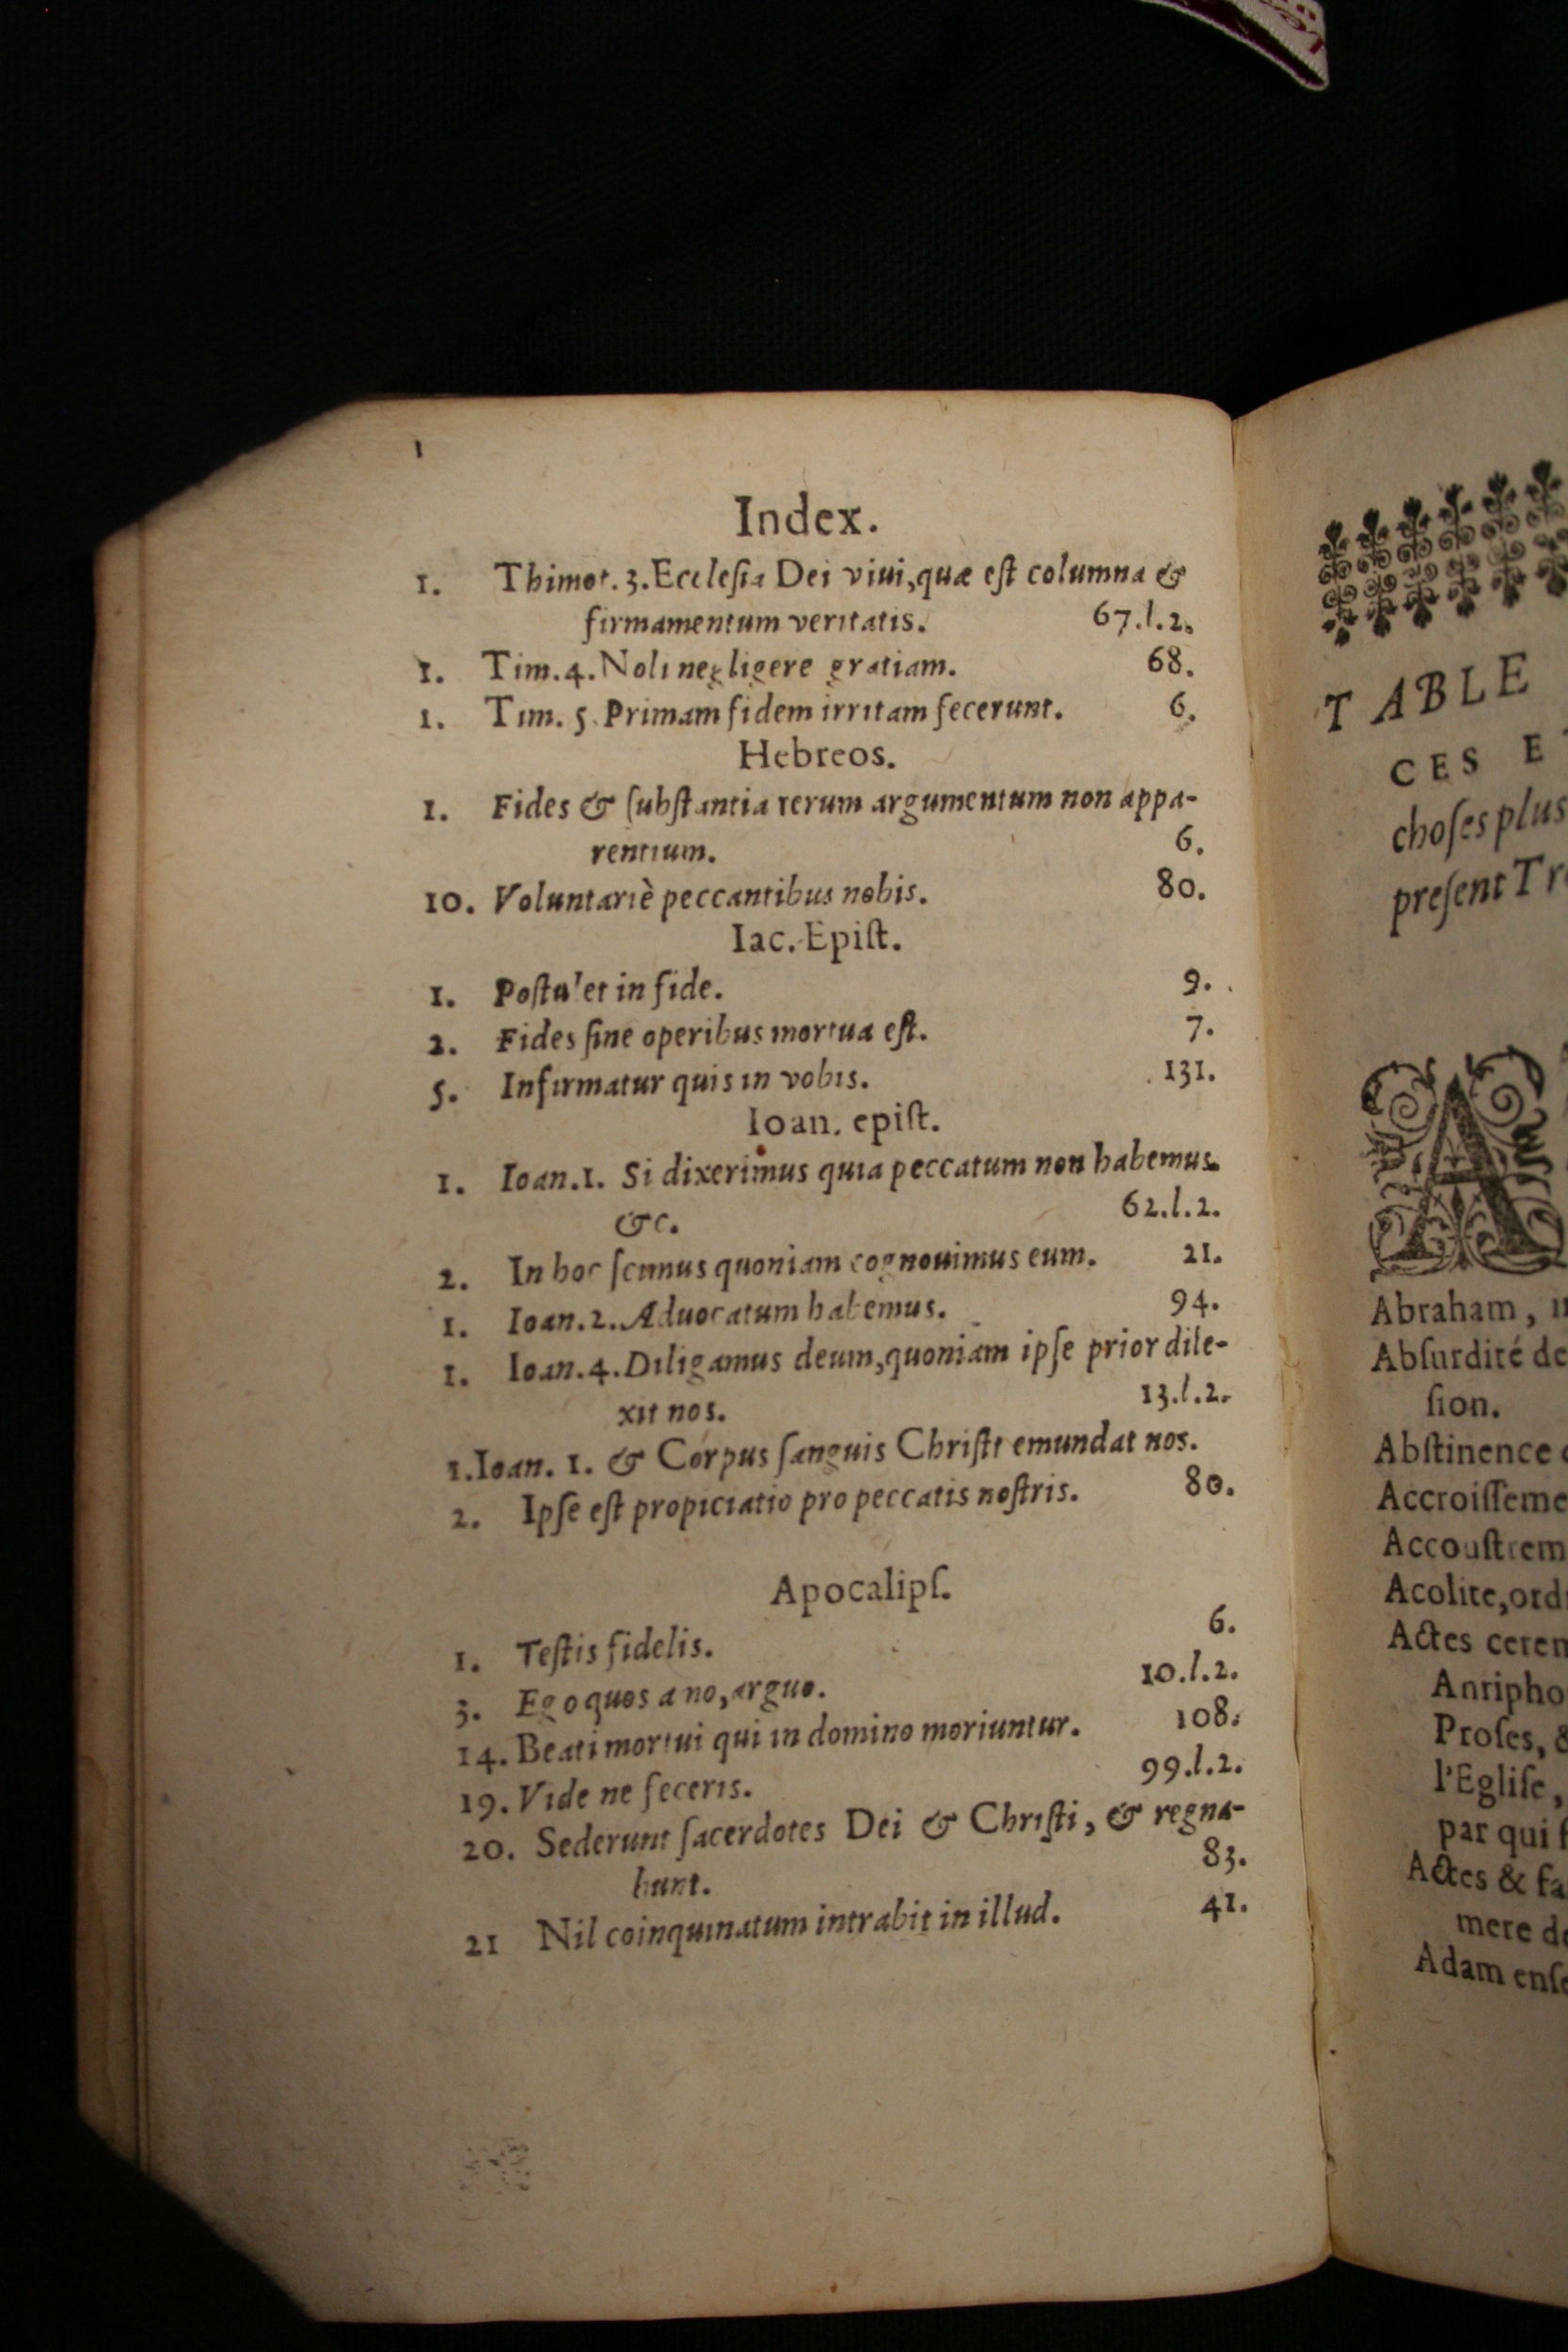 Index.
1. Thimot. 3. Ecclesia Dei viui, quæ est columna &
firmamentum veritatis. 67.l.2.
1. Tim. 4. Noli negligere gratiam. 68.
1. Tim. 5. Primam fidem irritam fecerunt. 6.
Hebreos.
1. Fides & substantia rerum argumentum non appa-
rentium. 6.
10. Voluntariè peccantibus nobis. 80.
Iac. Epist.
1. Postulet in fide. 9.
2. Fides sine operibus mortua est. 7.
5. Infirmatur quis in vobis. 131.
Ioan. epist.
1. Ioan. 1. Si dixerimus quia peccatum non habemus.
&c. 62.l.2.
2. In hoc scimus quoniam cognouimus eum. 21.
1. Ioan. 2. Aduocatum habemus. 94.
1. Ioan. 4. Diligamus deum, quoniam ipse prior dile-
xit nos. 13.l.2.
1. Ioan. 1. & Corpus sanguis Christi emundat nos.
2. Ipse est propiciatio pro peccatis nostris. 80.
Apocalips.
1. Testis fidelis. 6.
3. Ego quos amo, arguo. 10.l.2.
14. Beati mortui qui in domino moriuntur. 108.
19. Vide ne feceris. 99.l.2.
20. Sederunt sacerdotes Dei & Christi, & regna-
bunt. 83.
21 Nil coinquinatum intrabit in illud. 41.
TABLE
CES
choses plus
present
A
Abraham,
Absurdité de
sion.
Abstinence
Accroisseme
Accoustrem
Acolite, ord
Actes cerem
Antipho
Proses, &
l'Eglise,
par qui f
Actes & fa
mere de
Adam ense